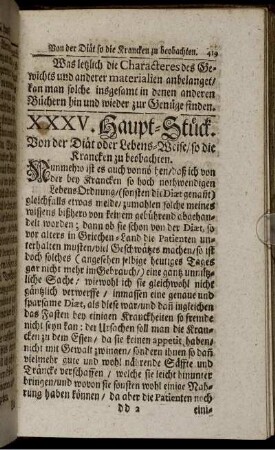 Von der Diät so die Krancken zu beobachten. 419
Was letzlich die Characteres des Ge-
wichts und anderer materialien anbelanget/
kan man solche insgesamt in denen anderen
Büchern hin und wieder zur Genüge finden.
XXXV. Haupt-Stück.
Von der Diät oder Lebens-Weise/ so die
Krancken zu beobachten.
Nunmehro ist es auch vonnö hen/ daß ich von
der bey Krancken so hoch nothwendigen
Lebens Ordnung/ (sonsten die Diæt genañt)
gleichfalls etwas melde/ zumahlen solche meines
wissens bißhero von keinem gebührend abgehan-
delt worden; dann ob sie schon von der Diæt, so
vor alters in Griechen-Land die Patienten un-
terhalten musten/ viel Geschwätzes machen/ so ist
doch solches (angesehen selbige heutiges Tages
gar nicht mehr im Gebrauch/) eine gantz unnütz-
liche Sache/ wiewohl ich sie gleichwohl nicht
gäntzlich verwerffe / inmassen eine genaue und
sparsame Diæt, als diese war/ und dañ ingleichen
das Fasten bey einigen Kranckheiten so fremde
nicht seyn kan: der Ursachen soll man die Kran-
cken zu dem Essen/ da sie keinen appetit haben/
nicht mit Gewalt zwingen/ sondern ihnen so dañ
vielmehr gute und wohl nährende Säffte und
Träncke verschaffen / welche sie leicht hinunter
bringen/ und wovon sie sonsten wohl einige Nah-
rung haben können / da aber die Patienten noch
dd 2 eini-